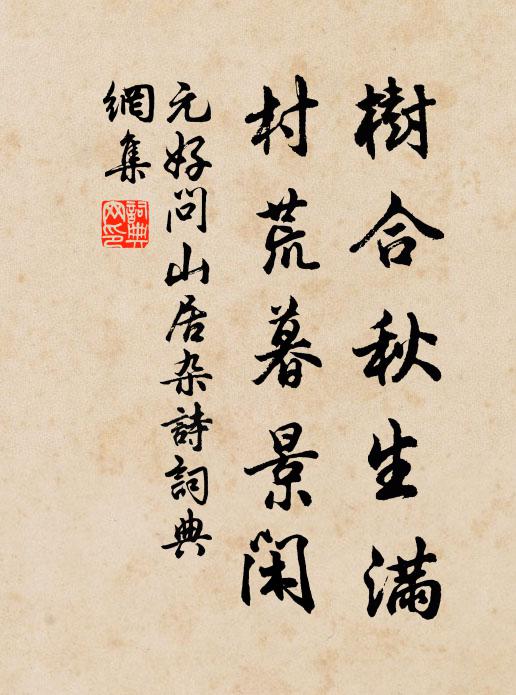 樹合秋生滿
村荒暮景閑
元好问山居杂詩詞典
網集
詞典
网印